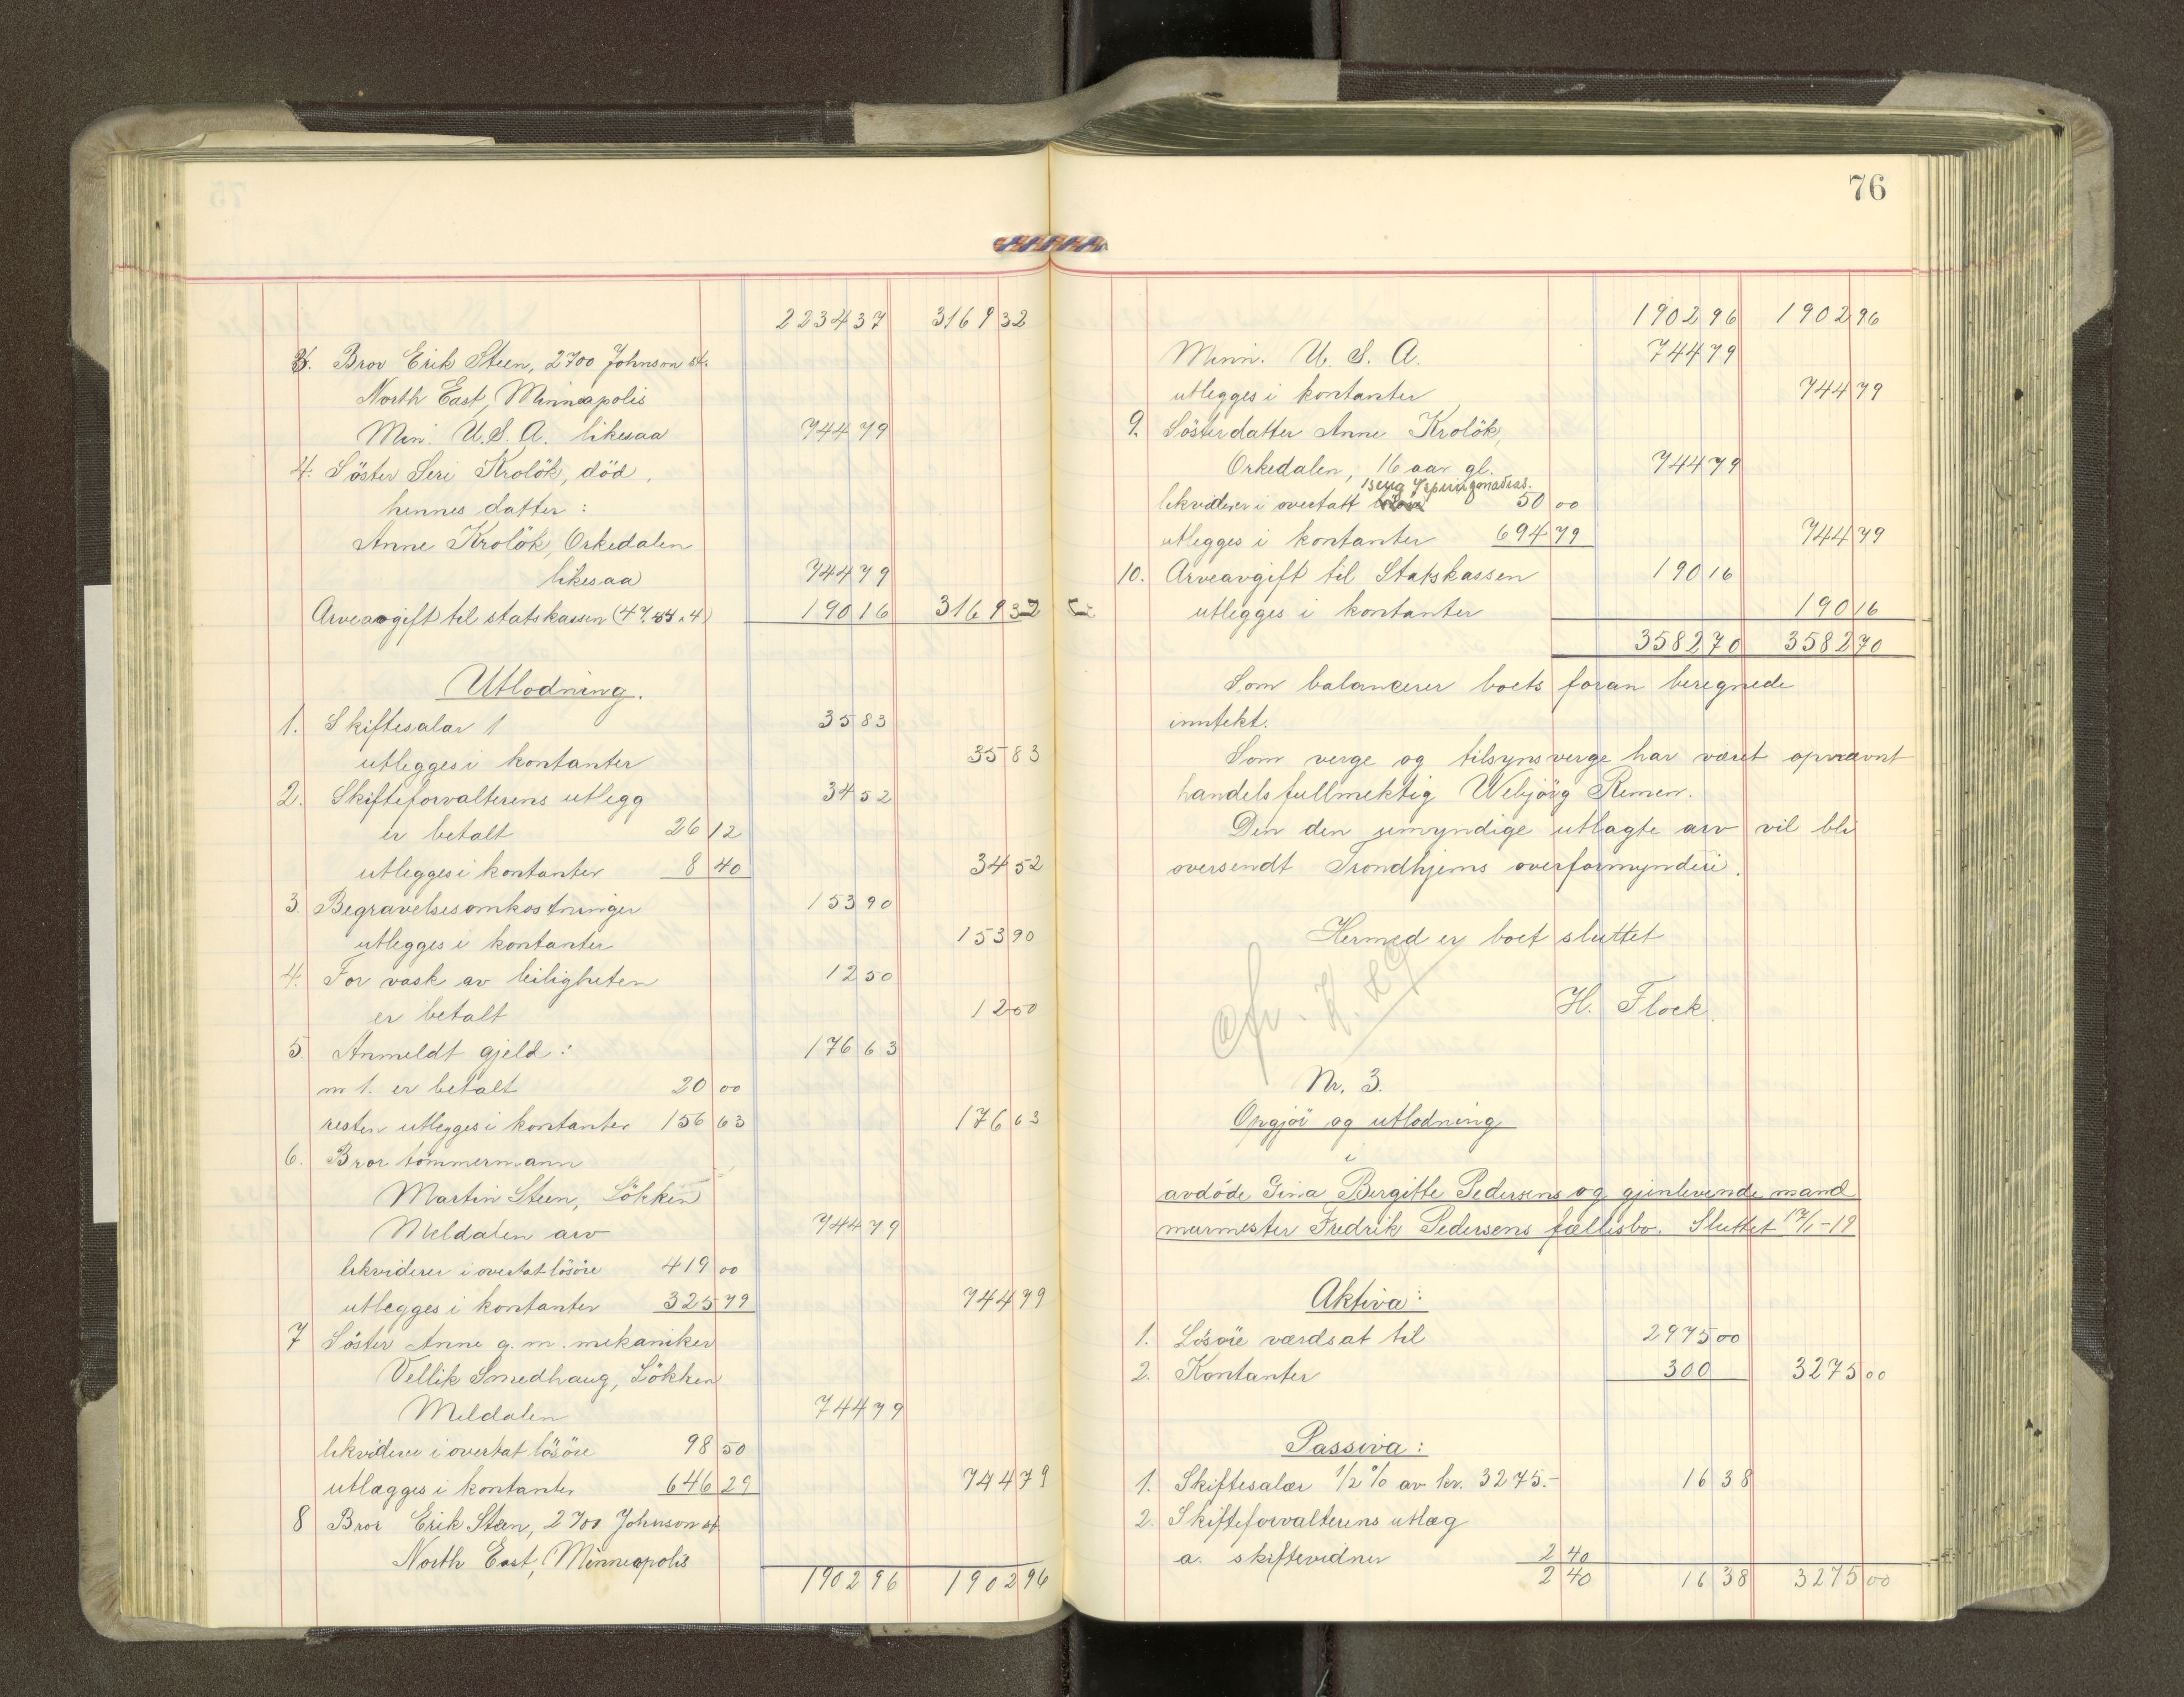 2234 37 3169 32
3. Bror Erik Steen, 2700 Johnson st.
North East, Minneapolis
Min. U.S.A. likesaa 744 79
4. Söster Seri Krolök, död,
hennes datter:
Anne Krolök, Orkedalen
likesaa 744 79
Arveavgift til statskassen (47,54 x 4) 190 16 3169 32
Utlodning.
1. Skiftesalær 1 35 83
utlegges i kontanter 35 83
2. Skifteforvalterens utlegg 34 52
er betalt 26 12
utlegges i kontanter 8 40 34 52
3. Begravelsesomkostninger 153 90
utlegges i kontanter 153 90
4. For vask av leiligheten 12 50
er betalt 12 50
5 Anmeldt gjeld: 176 63
nr 1. er betalt 20 00
resten utlegges i kontanter 156 63 176 63
6. Bror tömmermann
Martin Steen, Lökken
Meldalen arv 744 79
likviderer i overtat lösöre 419 00
utlegges i kontanter 325 79 744 79
7 Söster Anne g. m. mekaniker
Vellik Smedhaug, Lökken
Meldalen 744 79
likviderer i overtat lösöre 98 50
utlægges i kontanter 646 29 744 79
8 Bror Erik Steen, 2700 Johnson st.
North East, Minneapolis
1902 96 1902 96
76
1902 96 1902 96
Minn. U. S. A. 744 79
utlegges i kontanter 744 79
9. Sösterdatter Anne Krolök,
Orkedalen, 16 aar gl. 744 79
likviderer i overtatt 50 00
utlegges i kontanter 694 79 744 79
10. Arveavgift til Statskassen 190 16
utlegges i kontanter 190 16
3582 70 3582 70
Som balancerer boets foran beregnede
inntekt.
Som verge og tilsynsverge har været opnævnt
handelsfullmektig Webjörg Remen.
Den den umyndige utlagte arv vil bli
oversendt Trondhjems overformynderi.
Hermed er boet sluttet
H. Flock.
Nr. 3.
Opgjör og utlodning
i
avdöde Gina Bergitte Pedersens og gjenlevende mand
murmester Fredrik Pedersens fællesbo. Sluttet 17/1-19
Aktiva:
1. Lösöre værdsat til 2975 00
2. Kontanter 300 3275 00
Passiva:
1. Skiftesalær 1/2 % av kr. 3275.- 16 38
2. Skifteforvalterens utlæg
a. skiftevidner 2 40
2 40 16 38 3275 00